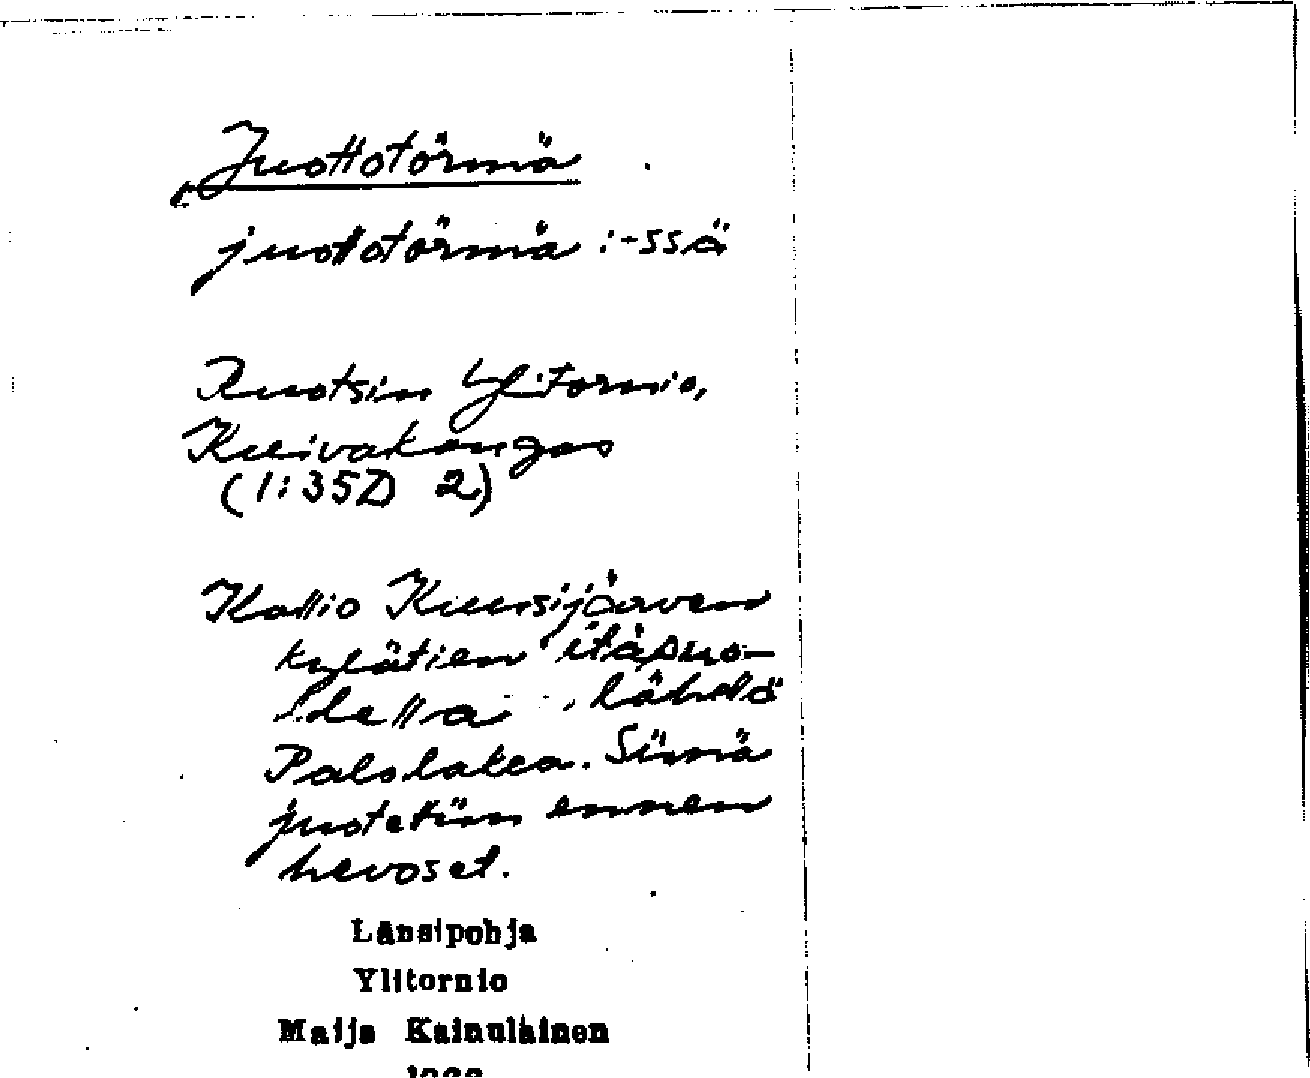 Juottotörmä
juottotörmä :-ssä
Ruotsin Ylitornio,
Kuivakangas
(1:35D 2)
Kallio Kuusijärven
kylätien itäpuo-
lella, lähellä
Palolakea. Siinä
juotettiin ennen
hevoset.
Länsipohja
Ylitornio
Maija Kainulainen